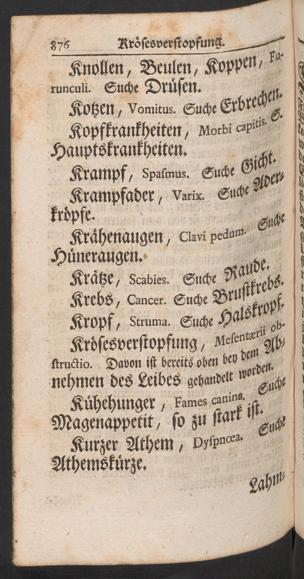 876 Krösesverstopfung.
Knollen, Beulen, Koppen, Fu-
runculi. Suche Drüsen.
Kotzen, Vomitus. Suche Erbrechen.
Kopfkrankheiten, Morbi capitis. S.
Hauptskrankheiten.
Krampf, Spasmus. Suche Gicht.
Krampfader, Varix. Suche Ader-
kröpfe.
Krähenaugen, Clavi pedum. Suche
Hüneraugen.
Krätze, Scabies. Suche Raude.
Krebs, Cancer. Suche Brustkrebs.
Kropf, Struma. Suche Halskropf.
Krösesverstopfung, Mesentærii ob-
structio. Davon ist bereits oben bey dem Ab-
nehmen des Leibes gehandelt worden.
Kühehunger, Fames canina. Suche
Magenappetit, so zu stark ist.
Kurzer Athem, Dyspnœa. Suche
Athemskürze.
Lahm-